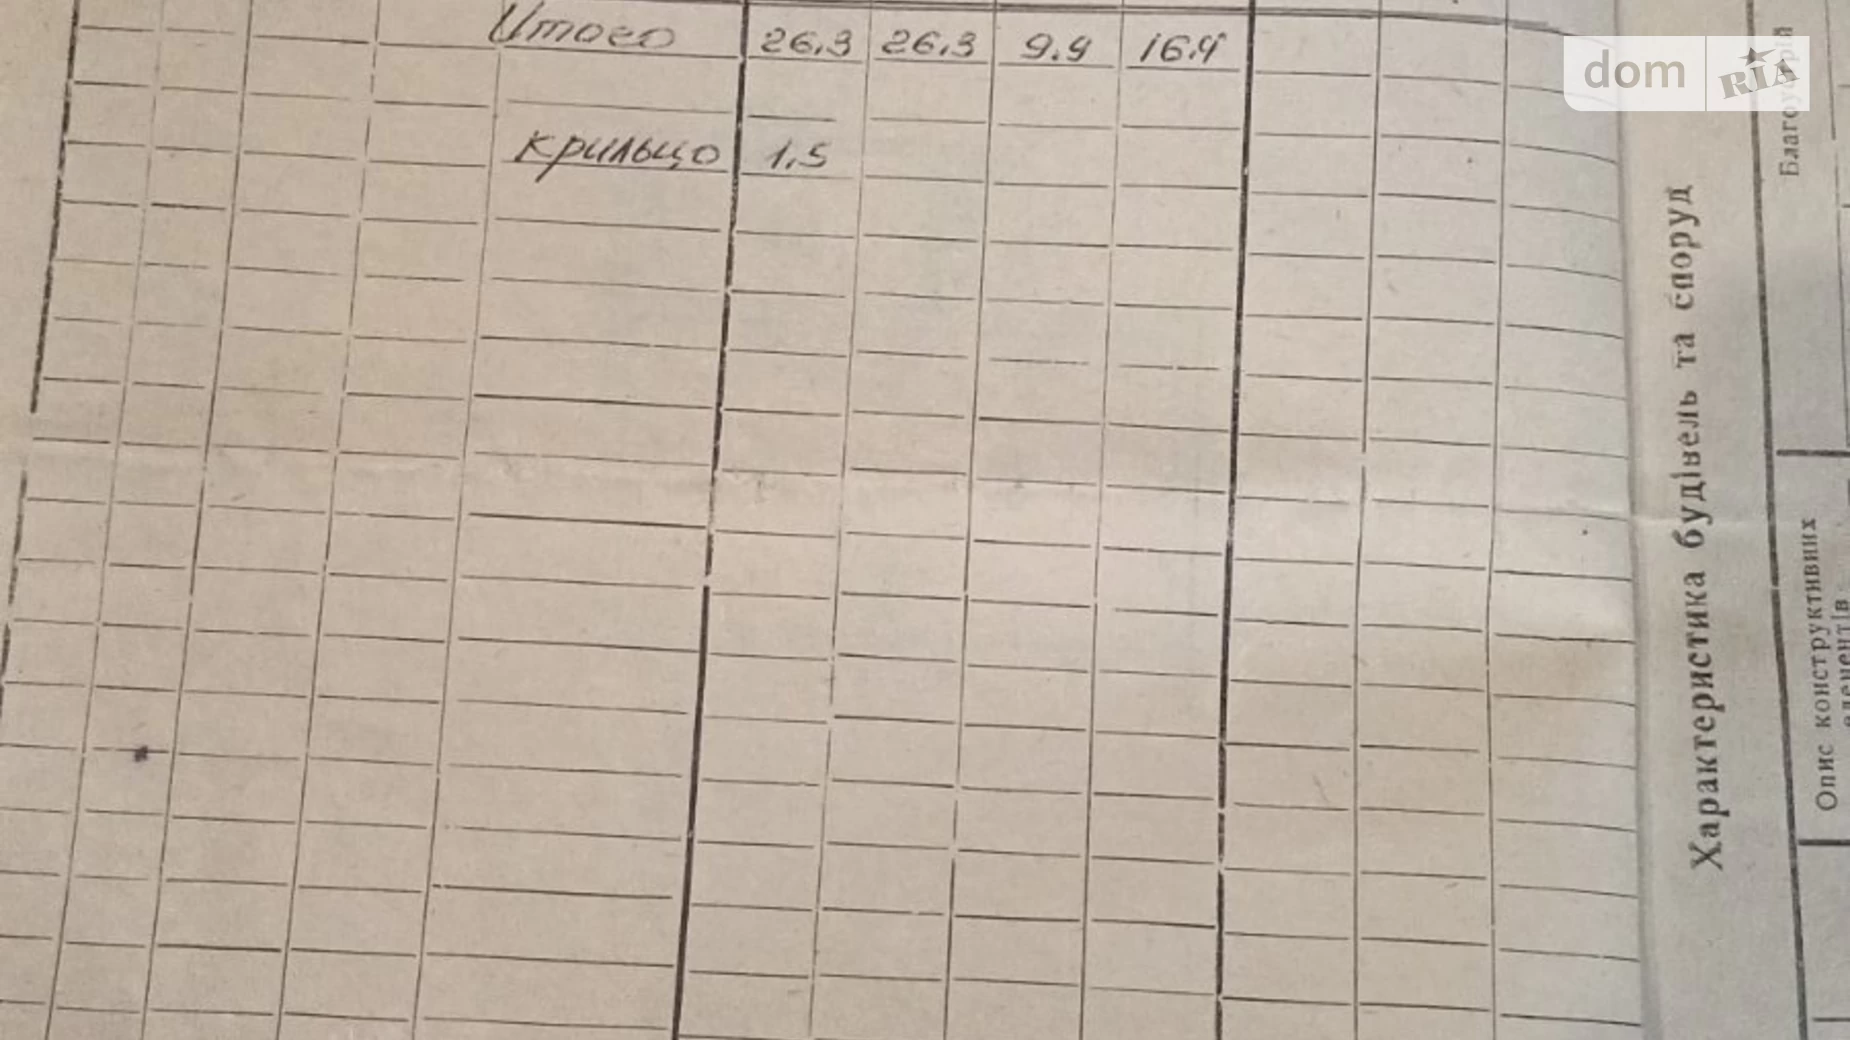 Итого 26.3 26.3 9.9 16.4
крильцо 1.5
Характеристика будівель та споруд
Благоустрій
Опис конструктивних
елементів
dom RIA